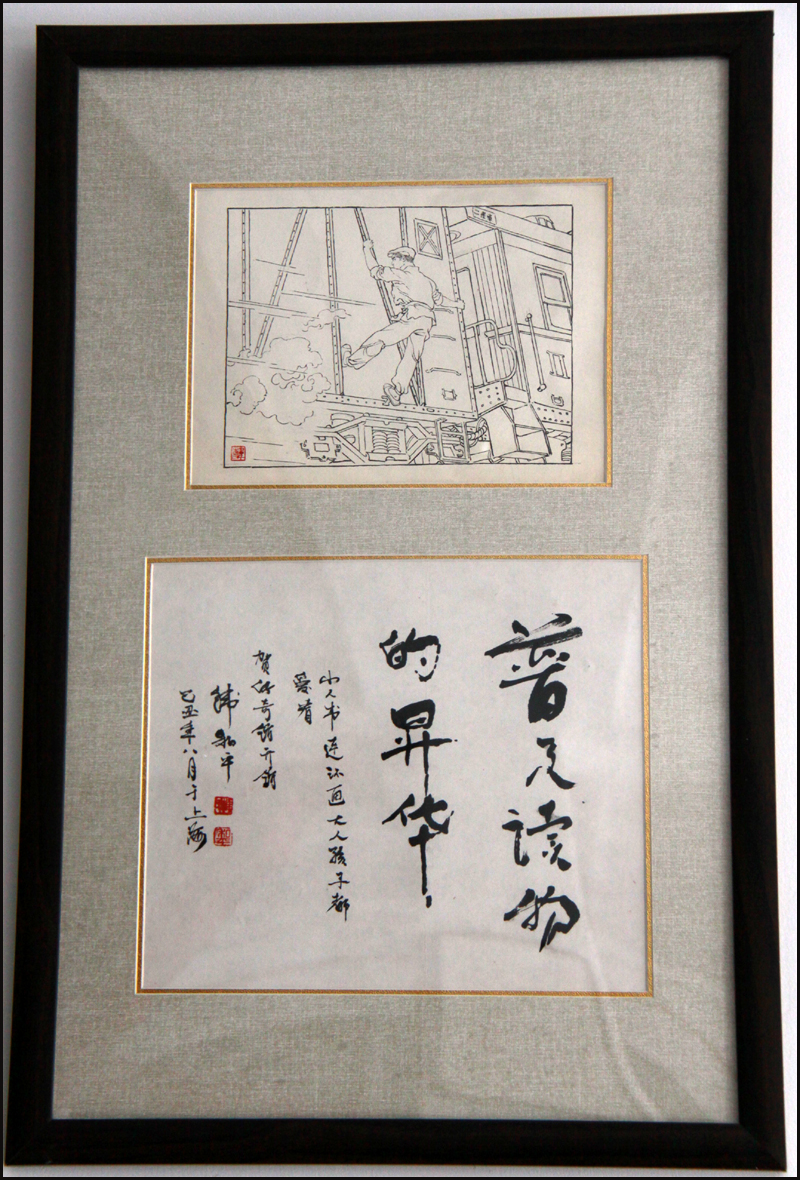 普及读物
的昇华
小人书连环画大人孩子都
爱看
贺奇馆开馆
韩和平
己丑年八月于上海